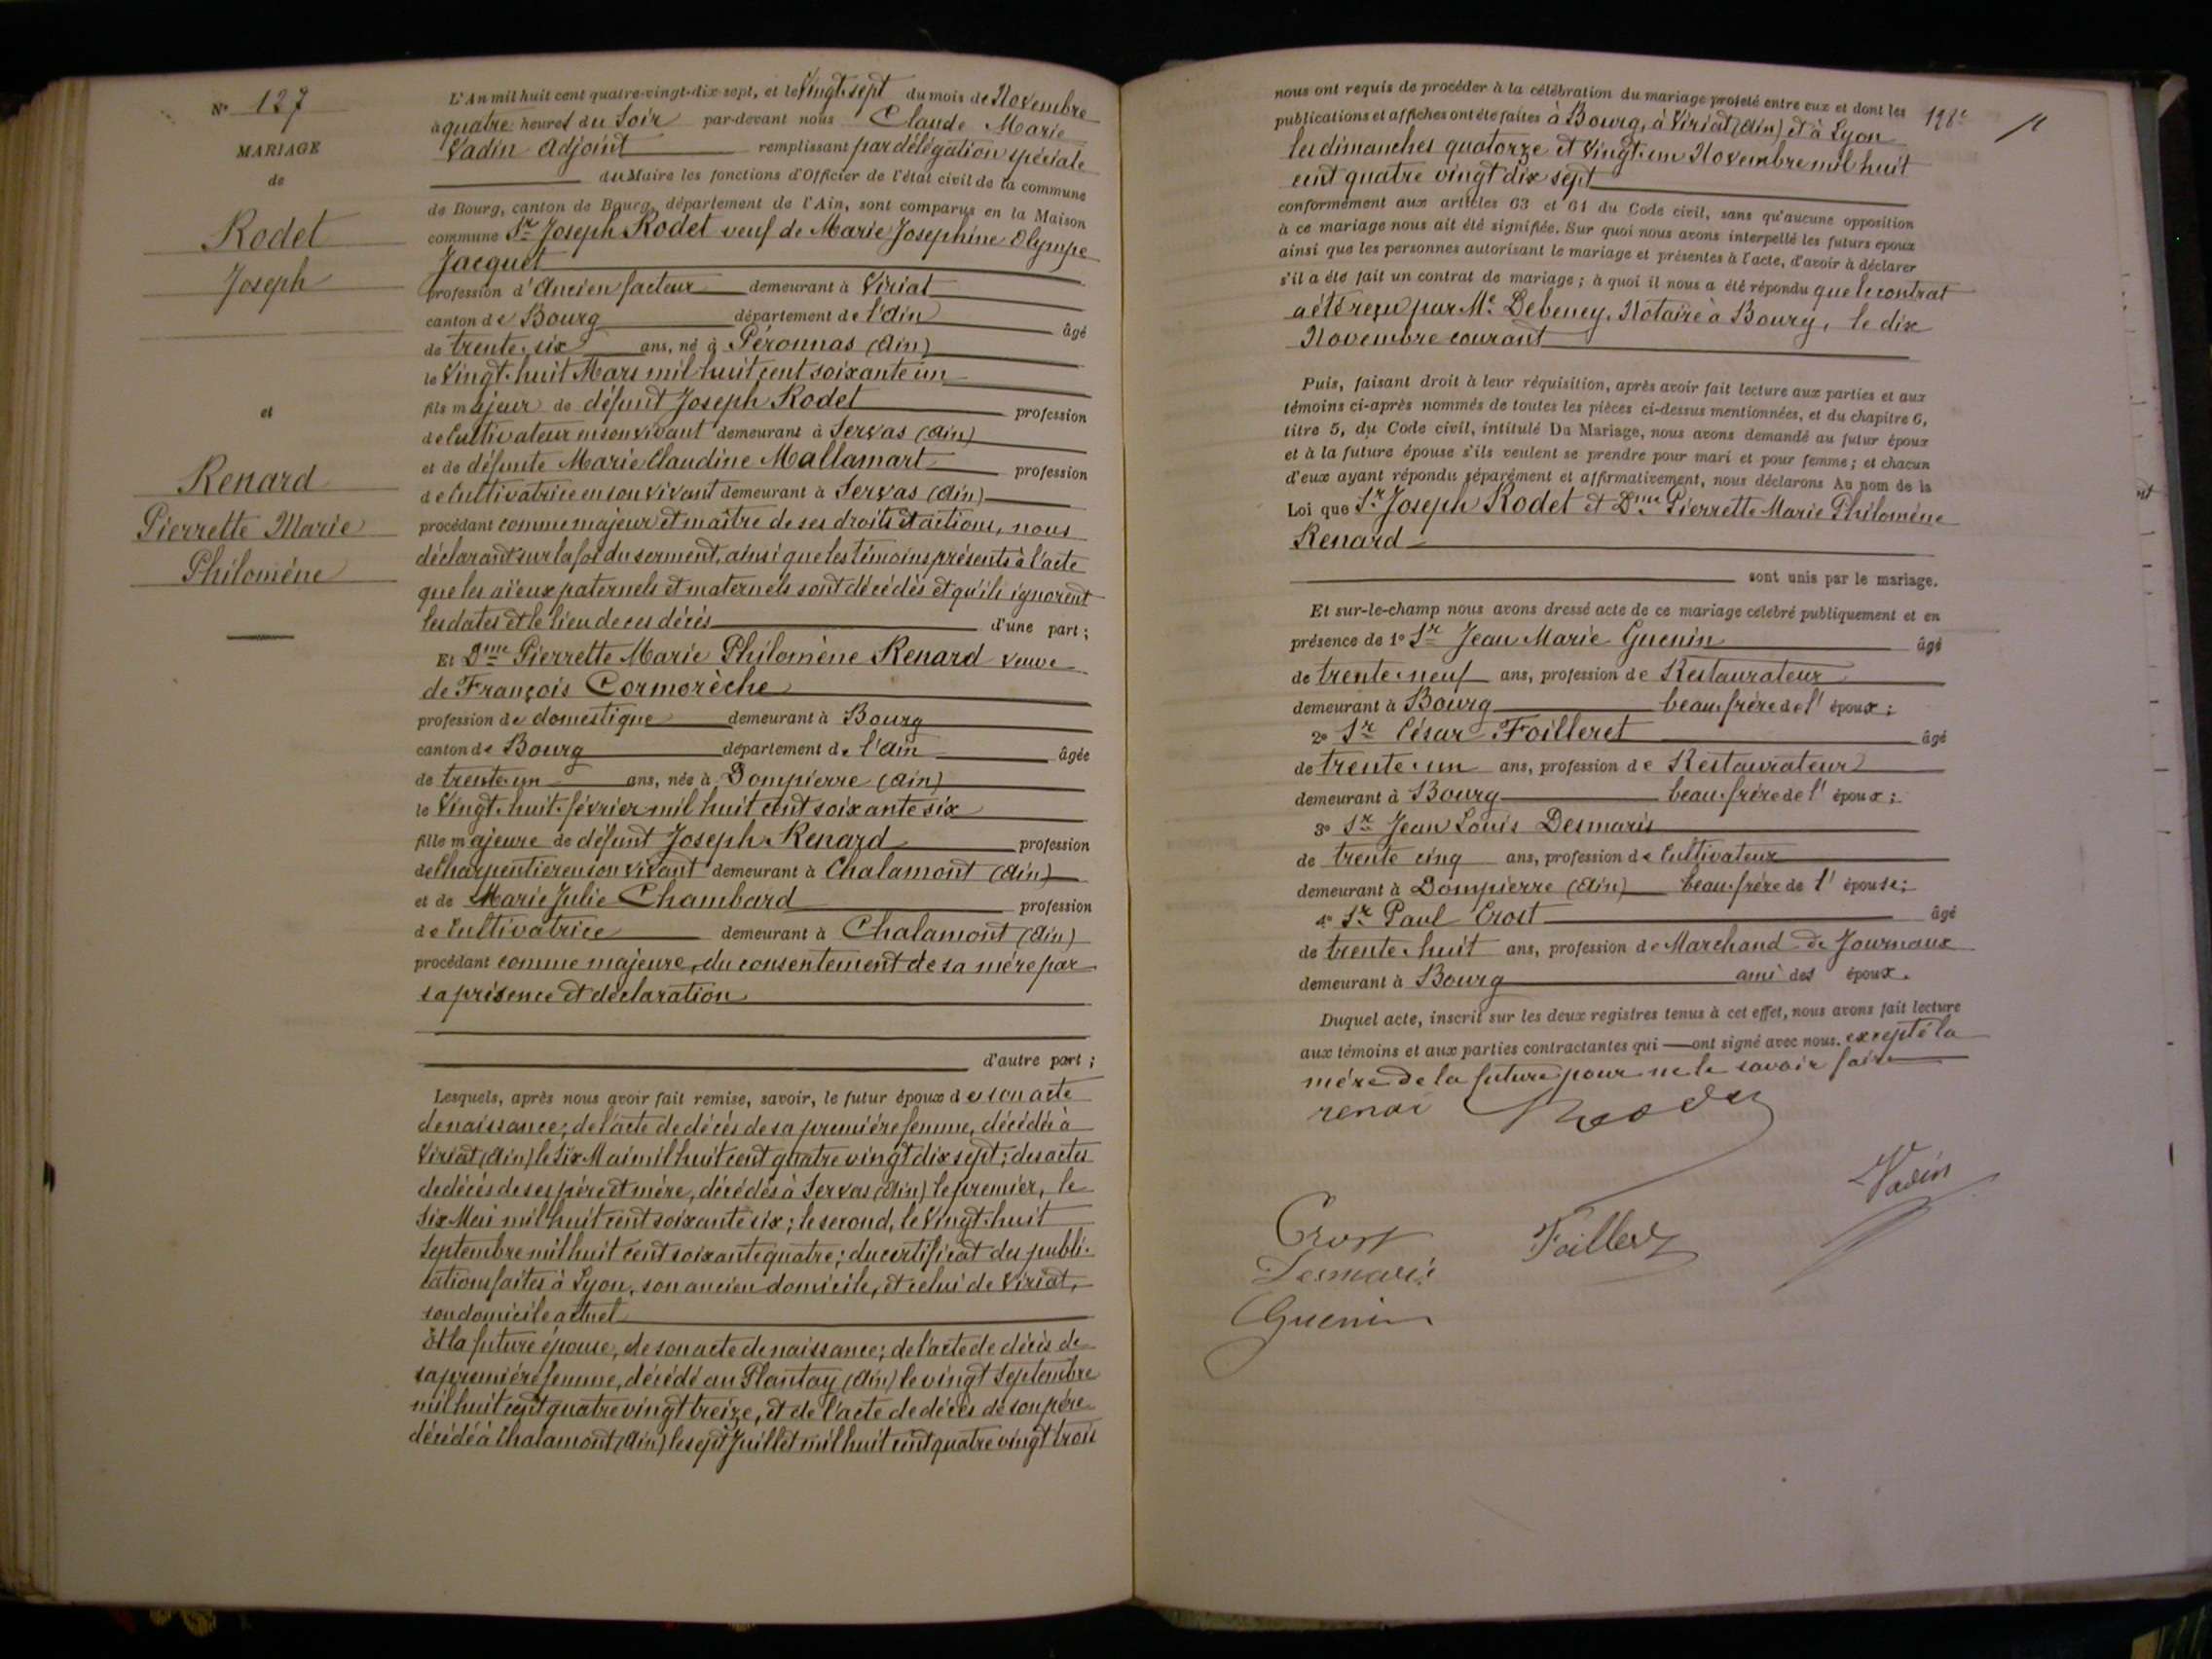 N° 127
MARIAGE
de
Rodet
Joseph
et
Renard
Pierrette Marie
Philomène
L'An mil huit cent quatre-vingt-dix-sept, et le Vingt-sept du mois de Novembre
à quatre heures du Soir par-devant nous Claude Marie
Vadin Adjoint remplissant par délégation spéciale
du Maire les fonctions d'Officier de l'état civil de la commune
de Bourg, canton de Bourg, département de l'Ain, sont comparus en la Maison
commune Sr Joseph Rodet veuf de Marie Josephine Olympe
Jacquet
profession d'Ancien facteur demeurant à Viriat
canton de Bourg département de l'Ain âgé
de trente-six ans, né à Péronnas (Ain)
le Vingt-huit Mars mil huit cent soixante un
fils majeur de défunt Joseph Rodet profession
de Cultivateur en son vivant demeurant à Servas (Ain)
et de défunte Marie Claudine Mallamart profession
de Cultivatrice en son vivant demeurant à Servas (Ain)
procédant comme majeur et maître de ses droits et actions, nous
déclarant sur la foi du serment, ainsi que les témoins présents à l'acte
que les aïeux paternels et maternels sont décédés et qu'ils ignorent
les dates et le lieu de ces décès d'une part;
Et Dme Pierrette Marie Philomène Renard veuve
de François Cormorèche
profession de domestique demeurant à Bourg
canton de Bourg département de l'Ain âgée
de trente-un ans, née à Dompierre (Ain)
le Vingt-huit février mil huit cent soixante six
fille majeure de défunt Joseph Renard profession
de Charpentier en son vivant demeurant à Chalamont (Ain)
et de Marie Julie Chambard profession
de Cultivatrice demeurant à Chalamont (Ain)
procédant comme majeure, du consentement de sa mère par
sa présence et déclaration
d'autre part;
Lesquels, après nous avoir fait remise, savoir, le futur époux de son acte
de naissance; de l'acte de décès de sa première femme, décédée à
Viriat (Ain) le Six Mai mil huit cent quatre vingt dix sept; des actes
de décès de ses père et mère, décédés à Servas (Ain) le premier, le
Six Mai mil huit cent soixante six; le second, le Vingt-huit
Septembre mil huit cent soixante quatre; du certificat des publi-
cations faites à Lyon, son ancien domicile, et celui de Viriat,
son domicile actuel
Et la future épouse, de son acte de naissance; de l'acte de décès de
sa première femme, décédé au Plantay (Ain) le vingt Septembre
mil huit cent quatre vingt treize, et de l'acte de décès de son père
décédé à Chalamont (Ain) le sept Juillet mil huit cent quatre vingt trois
nous ont requis de procéder à la célébration du mariage projeté entre eux et dont les
publications et affiches ont été faites à Bourg, à Viriat (Ain) et à Lyon
les dimanches quatorze et vingt-un Novembre mil huit
cent quatre vingt dix sept
conformément aux articles 63 et 64 du Code civil, sans qu'aucune opposition
à ce mariage nous ait été signifiée. Sur quoi nous avons interpellé les futurs époux
ainsi que les personnes autorisant le mariage et présentes à l'acte, d'avoir à déclarer
s'il a été fait un contrat de mariage; à quoi il nous a été répondu que le contrat
a été reçu par Me Debeney, Notaire à Bourg, le dix
Novembre courant
Puis, faisant droit à leur réquisition, après avoir fait lecture aux parties et aux
témoins ci-après nommés de toutes les pièces ci-dessus mentionnées, et du chapitre 6,
titre 5, du Code civil, intitulé Du Mariage, nous avons demandé au futur époux
et à la future épouse s'ils veulent se prendre pour mari et pour femme; et chacun
d'eux ayant répondu séparément et affirmativement, nous déclarons Au nom de la
Loi que Sr Joseph Rodet et Dme Pierrette Marie Philomène
Renard
sont unis par le mariage.
Et sur-le-champ nous avons dressé acte de ce mariage célébré publiquement et en
présence de 1° Sr Jean Marie Guenin âgé
de trente-neuf ans, profession de Restaurateur
demeurant à Bourg beau-frère de l'époux;
2° Sr César Foilleret âgé
de trente-un ans, profession de Restaurateur
demeurant à Bourg beau-frère de l'époux;
3° Sr Jean Louis Desmaris
de trente cinq ans, profession de Cultivateur
demeurant à Dompierre (Ain) beau-frère de l'épouse;
4° Sr Paul Crost âgé
de trente-huit ans, profession de Marchand de Journaux
demeurant à Bourg ami des époux.
Duquel acte, inscrit sur les deux registres tenus à cet effet, nous avons fait lecture
aux témoins et aux parties contractantes qui ont signé avec nous. excepté la
mère de la future pour ne le savoir faire
renar Rodet
Vadin
Crost Foilleret
Desmaris
Guenin